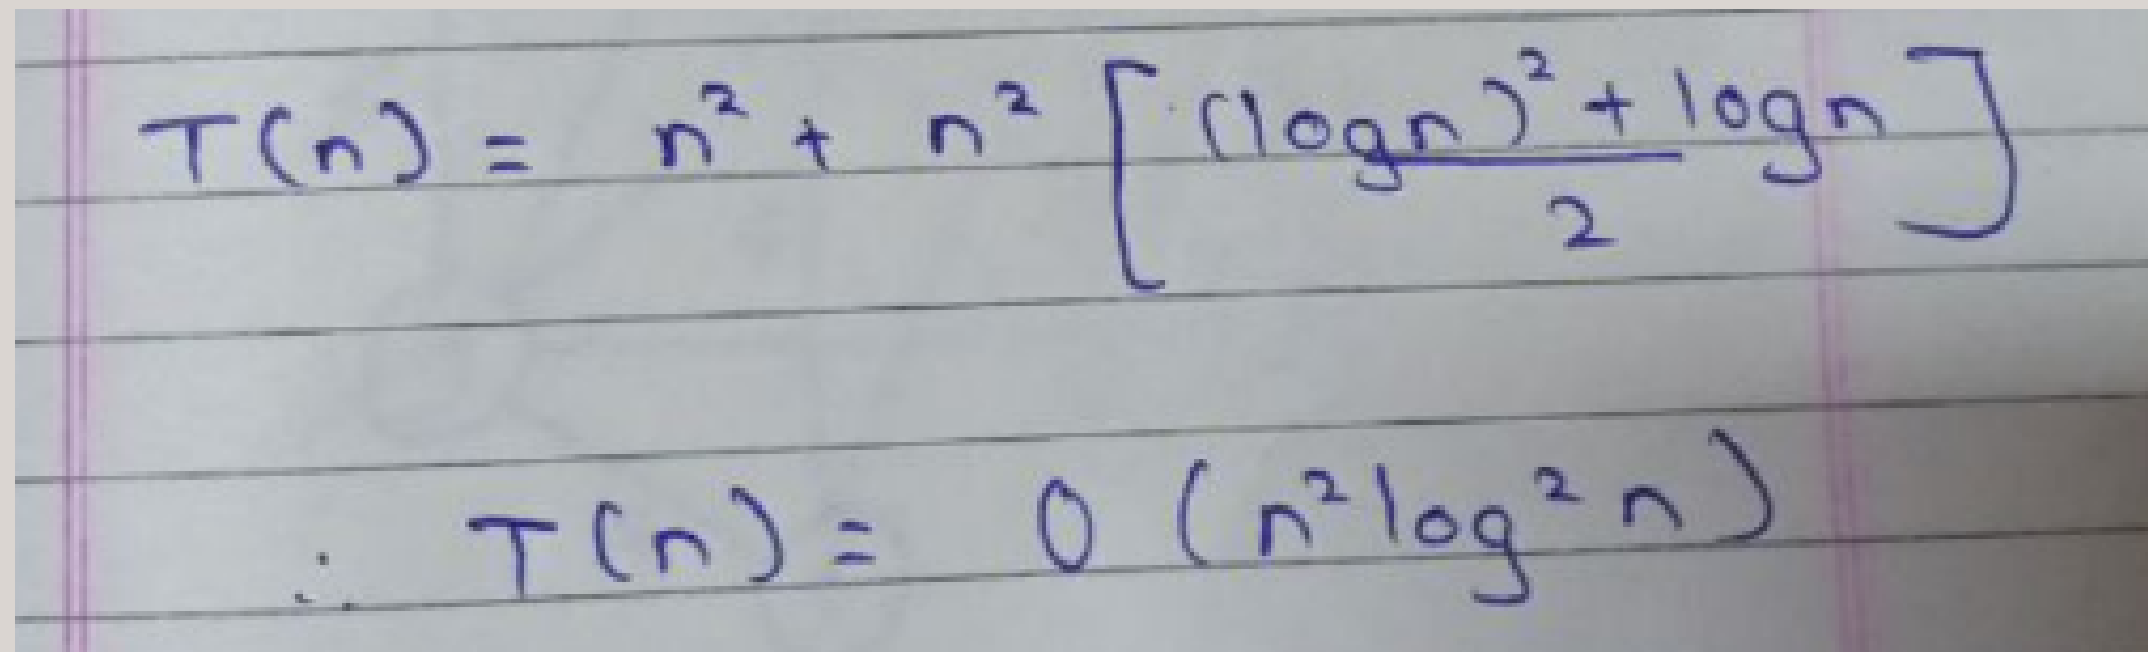 T(n) = n² + n² [ (logn)² + logn / 2 ]
∴ T(n) = O (n² log² n)